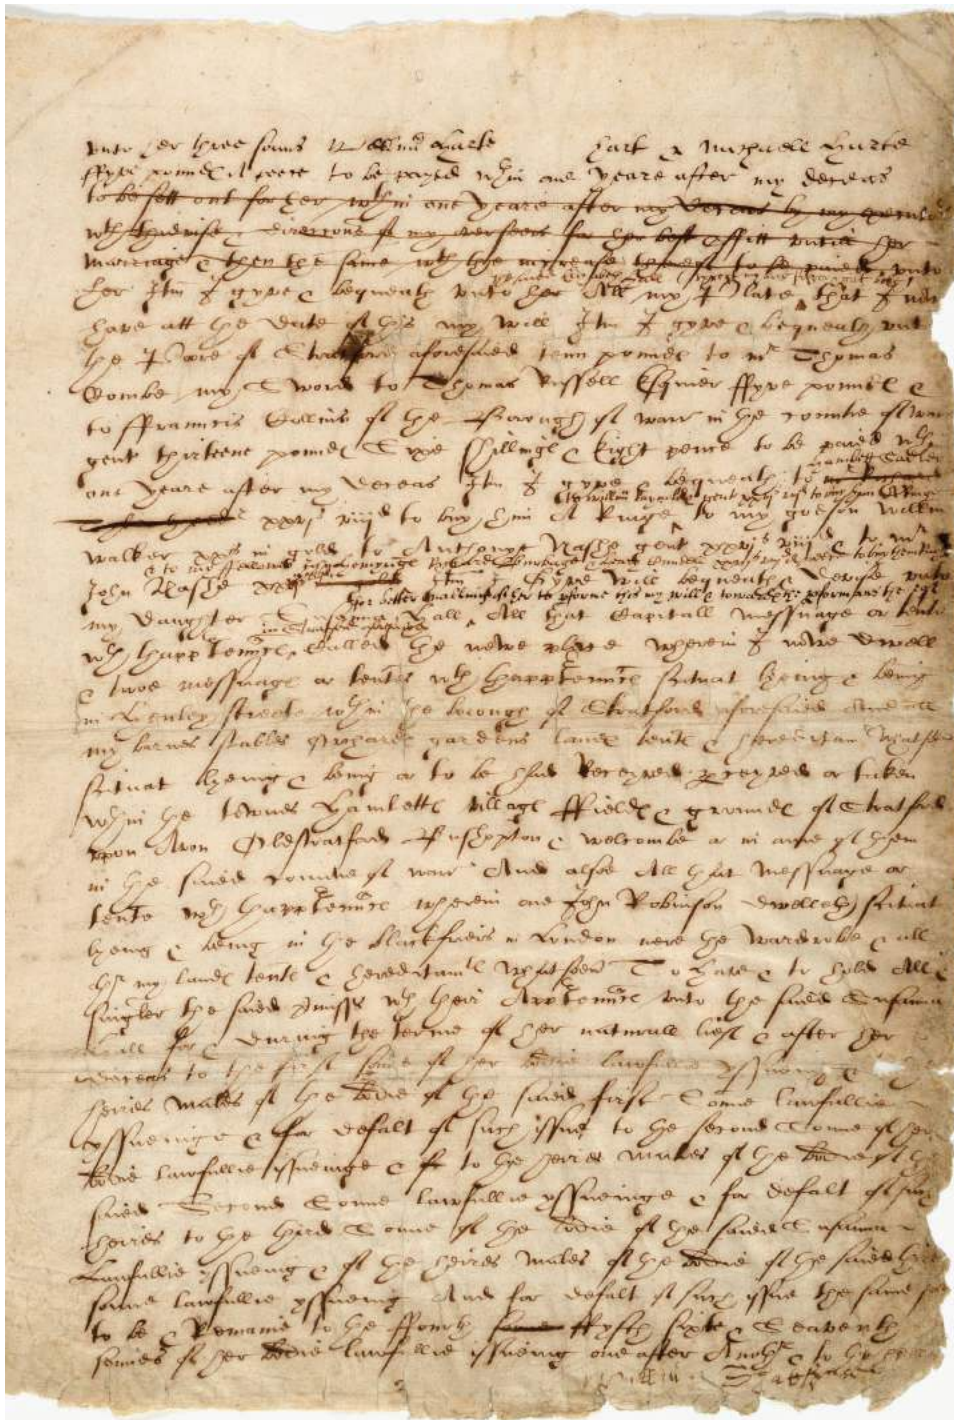 unto her three sonns Willm Harte hart & Michaell Harte
ffyve pounds A peece to be payed wthin one yeare after my deceas
to be sett out for her wthin one yeare after my deceas by my executors
wth thadvise & direccons of my overseers for her best proffitt untill her
marriage & then the same wth the increase thereof to be paied unto
her Itm I gyve & bequeath unto her All my Plate that I now
(except my brod silver & gilt bole)
have att the date of this my will Itm I gyve & bequeath unto
the Poore of Stratford aforesaied tenn pounds to mr Thomas
Combe my Sword to Thomas Russell Esquier ffyve pounds &
to ffrauncis Collins of the Borough of warr in the countie of warr
gent thirteene pounds Sixe shillings & Eight pence to be paied wthin
one yeare after my deceas Itm I gyve & bequeath to
Hamlett Sadler
xxvjs viijd to buy him A Ringe to my godson willm
to willm Raynoldes gent xxvjs viijd to buy him A Ringe
walker xxs in gold to Anthonye Nashe gent xxvjs viijd & to mr
John Nashe xxvjs viijd Itm I Gyve will bequeath & Devise unto
& to my fellowes John Hemynge Richard Burbage & Henry Cundell xxvjs viijd A peece to buy them Ringes
my Daughter Susanna Hall All that Capitall messuage or tente
for better enabling of her to pforme this my will & towardes the pformans thereof
wth thappurtennces Called the newe place wherein I nowe Dwell
in Stratford aforesaied
& twoe messuags or tentes wth thappurtennces scituat lyeing & being
in Henley streete wthin the borough of Stratford aforesaied And all
my barnes stables Orchards gardens lands tents & hereditamts whatsoever
scituat lyeing & being or to be had Receyved perceyved or taken
wthin the townes Hamletts villags ffields & grounds of Stratford
upon Avon Oldstratford Bushopton & welcombe or in anie of them
in the saied countie of warr And alsoe All that messuage or
tente wth thappurtennces wherein one John Robinson dwelleth scituat
lyeing & being in the blackfriers in London nere the wardrobe & all
othr my lands tents & hereditamts whatsoevr To Have & to hold All &
singler the saied pmisss wth theire Appurtennces unto the saied Susanna
Hall for & during the terme of her naturall lief & after her
deceas to the first sonne of her bodie lawfullie yssueing &
heires males of the bodie of the saied first Sonne lawfullie
yssueinge & for defalt of such issue to the second Sonne of her
bodie lawfullie issueinge & to the heires males of the bodie of the
saied Second Sonne lawfullie yssueinge & for defalt of such
heires to the third Sonne of the bodie of the saied Susanna
Lawfullie yssueing & of the heires males of the bodie of the saied third
sonne lawfullie yssueing And for defalt of such issue the same
to be & Remaine to the ffourth sonne ffyfth sixte & Seaventh
sonnes of her bodie lawfullie issueing one after Anothr & to the
Willm Shakspere